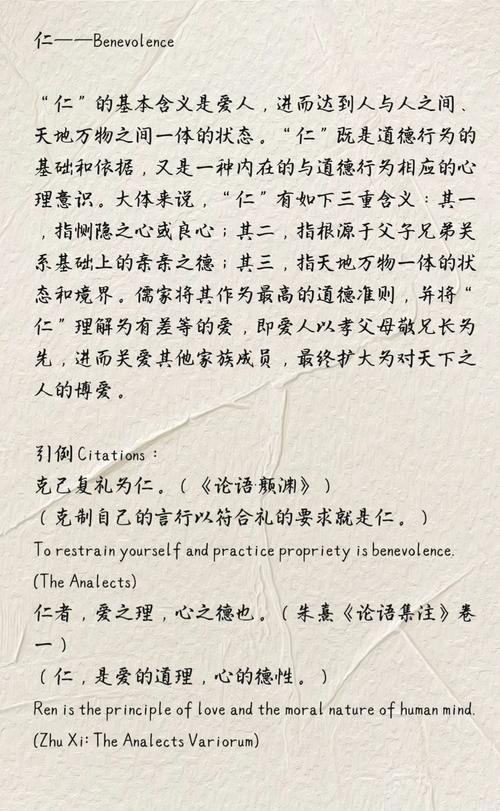 仁——Benevolence
“仁”的基本含义是爱人，进而达到人与人之间、
天地万物之间一体的状态。“仁”既是道德行为的
基础和依据，又是一种内在的与道德行为相应的心
理意识。大体来说，“仁”有如下三重含义：其一
，指恻隐之心或良心；其二，指根源于父子兄弟关
系基础上的亲亲之德；其三，指天地万物一体的状
态和境界。儒家将其作为最高的道德准则，并将“
仁”理解为有差等的爱，即爱人以孝父母敬兄长为
先，进而关爱其他家族成员，最终扩大为对天下之
人的博爱。
引例 Citations：
克己复礼为仁。（《论语·颜渊》）
（克制自己的言行以符合礼的要求就是仁。）
To restrain yourself and practice propriety is benevolence.
(The Analects)
仁者，爱之理，心之德也。（朱熹《论语集注》卷
一）
（仁，是爱的道理，心的德性。）
Ren is the principle of love and the moral nature of human mind.
(Zhu Xi: The Analects Variorum)